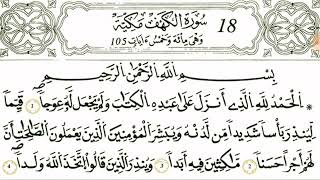 سُورَةُ الْكَهْفِ مَكِّيَّةٌ 18
وَهِيَ مِائَةٌ وَخَمْسُ ءَايَاتٍ 105
بِسْمِ اللَّهِ الرَّحْمَٰنِ الرَّحِيمِ
الْحَمْدُ لِلَّهِ الَّذِي أَنزَلَ عَلَىٰ عَبْدِهِ الْكِتَابَ وَلَمْ يَجْعَل لَّهُ عِوَجًا 1 قَيِّمًا
لِّيُنذِرَ بَأْسًا شَدِيدًا مِّن لَّدُنْهُ وَيُبَشِّرَ الْمُؤْمِنِينَ الَّذِينَ يَعْمَلُونَ الصَّالِحَاتِ أَنَّ
لَهُمْ أَجْرًا حَسَنًا 2 مَّاكِثِينَ فِيهِ أَبَدًا 3 وَيُنذِرَ الَّذِينَ قَالُوا اتَّخَذَ اللَّهُ وَلَدًا 4